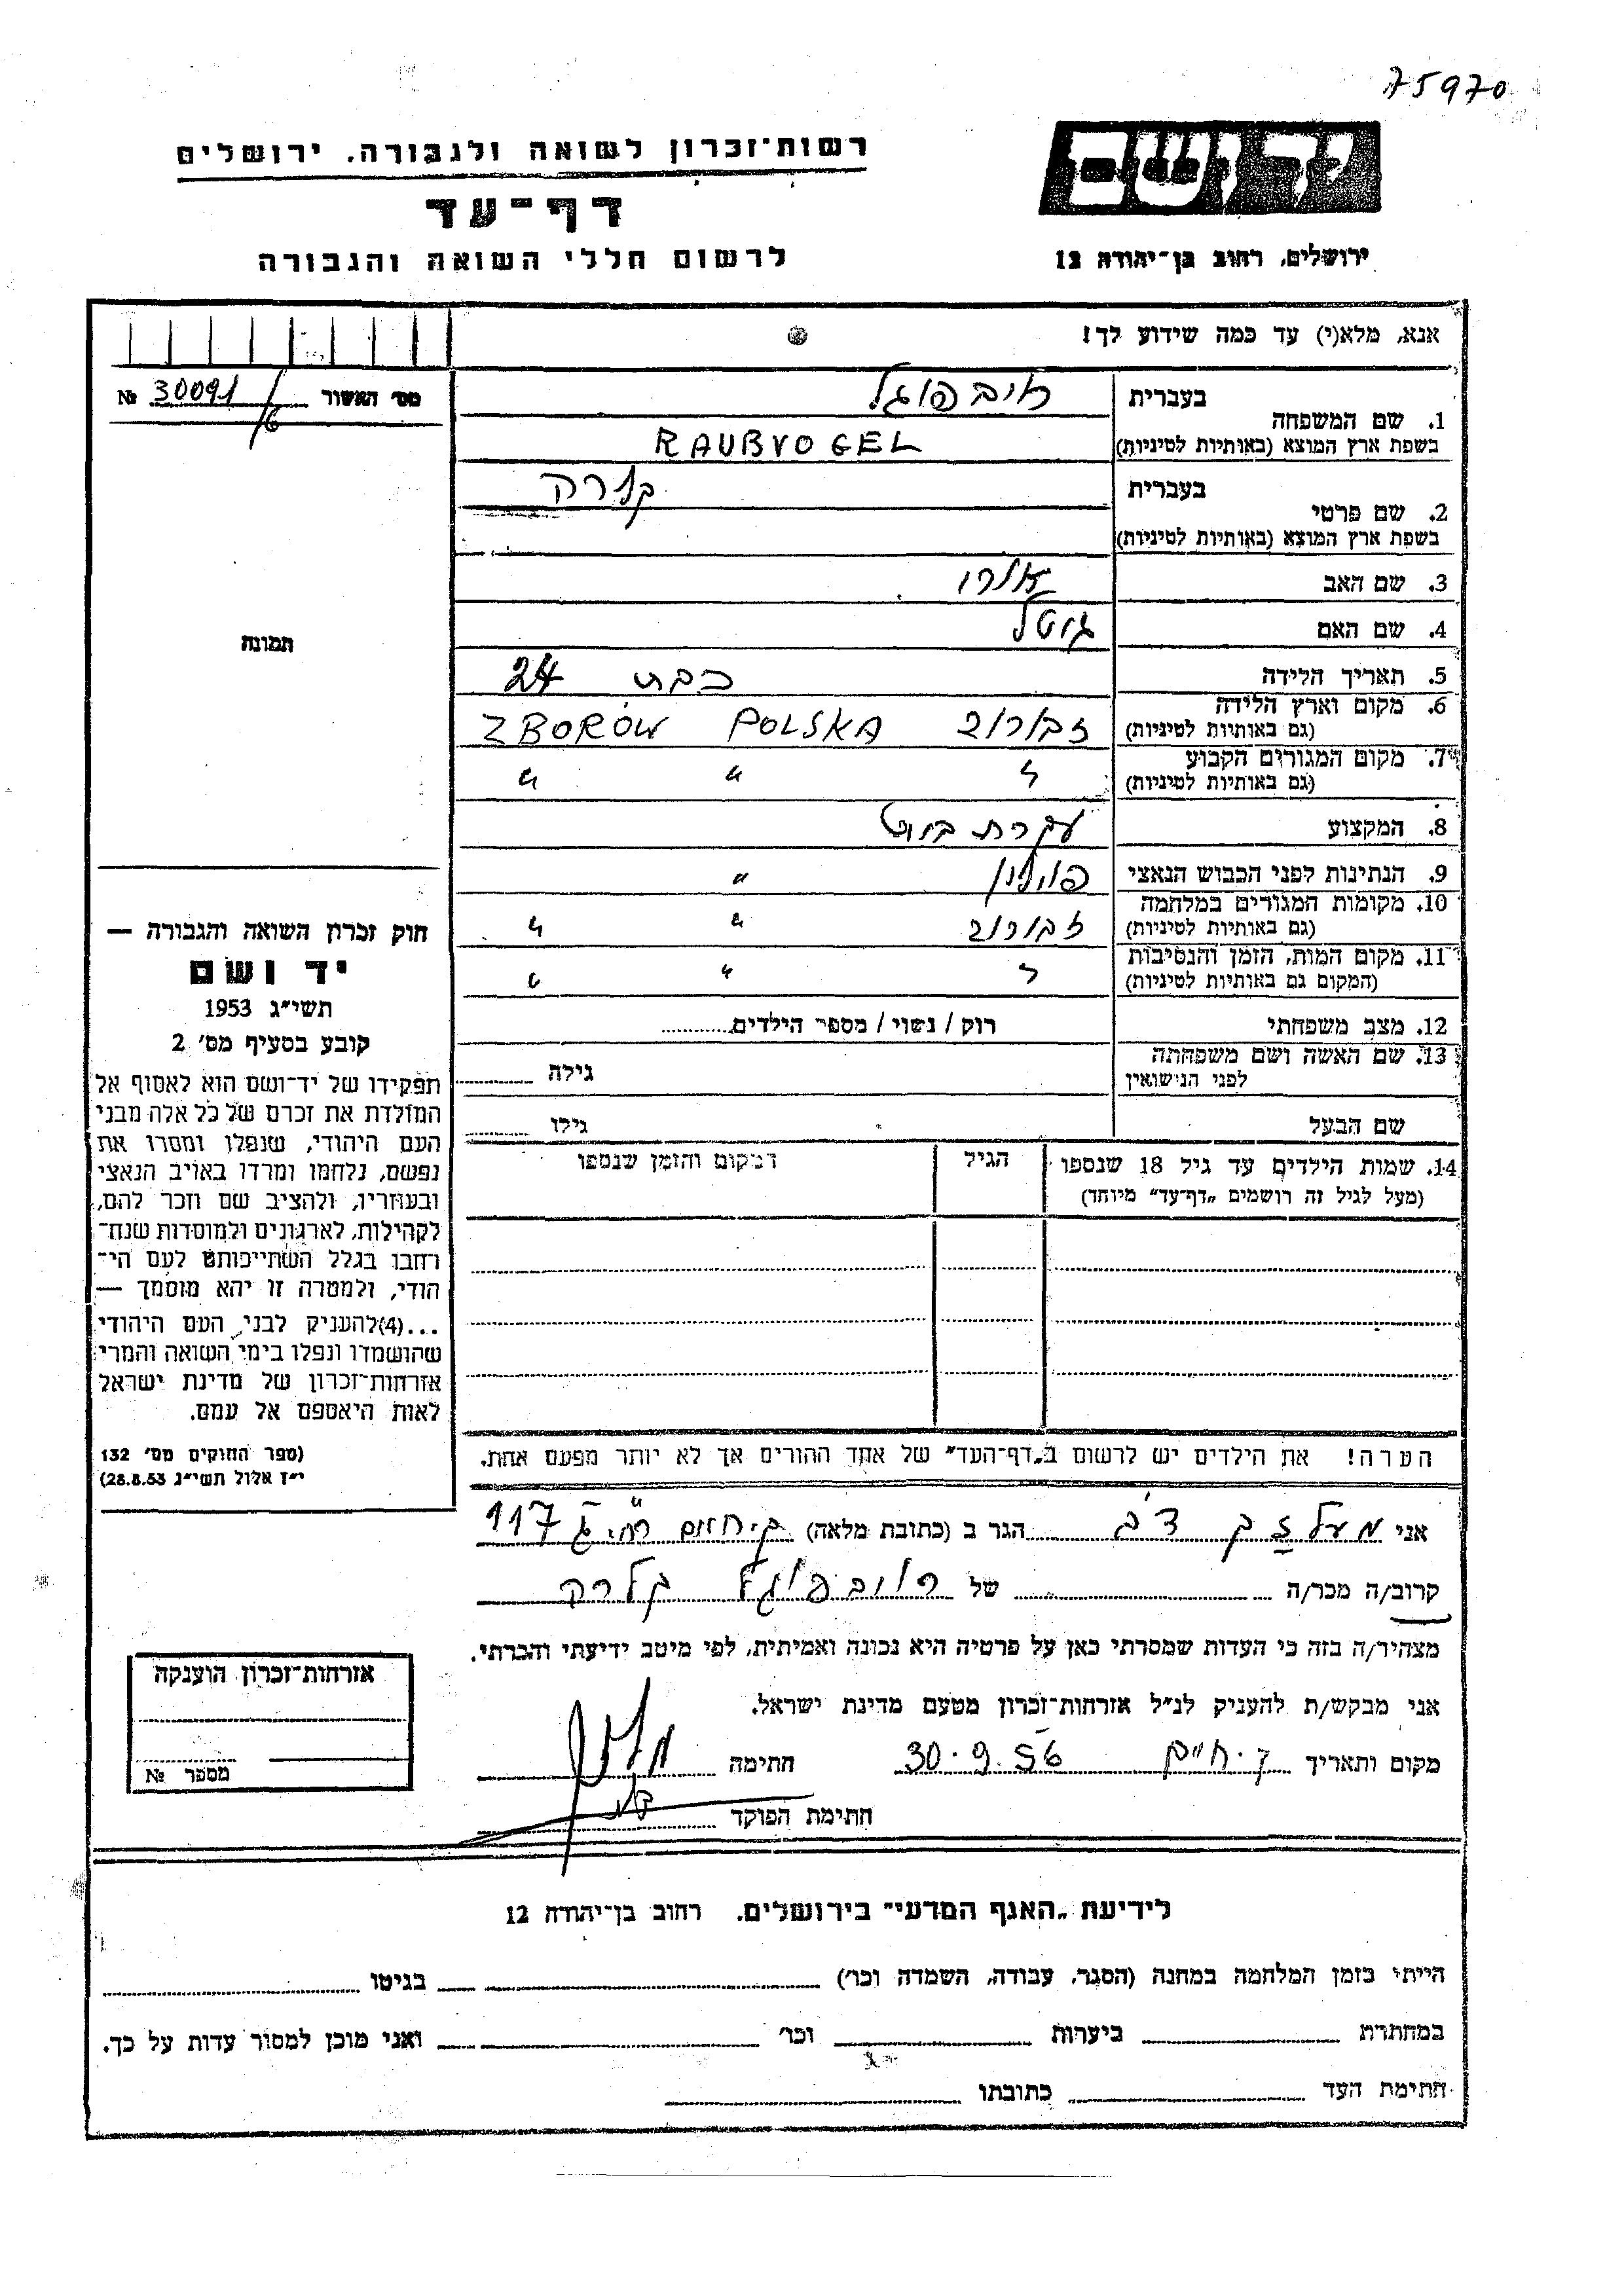 75970
יד ושם
ירושלים, רחוב בן־יהודה 12
רשות־זכרון לשואה ולגבורה, ירושלים
דף־עד
לרשום חללי השואה והגבורה
אנא, מלא(י) עד כמה שידוע לך!
מס׳ האשור № 30091/6
תמונה
1. שם המשפחה
בעברית רויבפוגל
בשפת ארץ המוצא (באותיות לטיניות) RAUBVOGEL
2. שם פרטי
בעברית קלרה
בשפת ארץ המוצא (באותיות לטיניות)
3. שם האב
4. שם האם גוסטל
5. תאריך הלידה כבת 24
6. מקום וארץ הלידה זבורוב POLSKA ZBORÓW
(גם באותיות לטיניות)
7. מקום המגורים הקבוע " " "
(גם באותיות לטיניות)
8. המקצוע עקרת בית
9. הנתינות לפני הכבוש הנאצי פולין "
10. מקומות המגורים במלחמה זבורוב " "
(גם באותיות לטיניות)
11. מקום המות, הזמן והנסיבות " " "
(המקום גם באותיות לטיניות)
12. מצב משפחתי רוק / נשוי / מספר הילדים
13. שם האשה ושם משפחתה גילה
לפני הנישואין
שם הבעל גילו
14. שמות הילדים עד גיל 18 שנספו הגיל המקום והזמן שנספו
(מעל לגיל זה רושמים „דף־עד״ מיוחד)
חוק זכרון השואה והגבורה —
יד ושם
תשי״ג 1953
קובע בסעיף מס׳ 2
תפקידו של יד־ושם הוא לאסוף אל
המולדת את זכרם של כל אלה מבני
העם היהודי, שנפלו ומסרו את
נפשם, נלחמו ומרדו באויב הנאצי
ובעוזריו, ולהציב שם וזכר להם,
לקהילות, לארגונים ולמוסדות שנח־
רחבו בגלל השתייכותם לעם הי־
הודי, ולמטרה זו יהא מוסמך —
...(4)להעניק לבני העם היהודי
שהושמדו ונפלו בימי השואה והמרי
אזרחות־זכרון של מדינת ישראל
לאות היאספם אל עמם.
(ספר החוקים מס׳ 132
י״ז אלול תשי״ג 28.8.53)
הערה! את הילדים יש לרשום ב„דף־העד״ של אחד ההורים אך לא יותר מפעם אחת.
אני דב הגר ב (כתובת מלאה) ק. חיים 117
קרוב/ה מכר/ה של רויבפוגל קלרה
מצהיר/ה בזה כי העדות שמסרתי כאן על פרטיה היא נכונה ואמיתית, לפי מיטב ידיעתי והכרתי.
אני מבקש/ת להעניק לנ״ל אזרחות־זכרון מטעם מדינת ישראל.
מקום ותאריך ק. חיים 30.9.56 חתימה
חתימת הפוקד
אזרחות־זכרון הוענקה
מספר №
לידיעת „האגף המדעי״ בירושלים, רחוב בן־יהודה 12
הייתי בזמן המלחמה במחנה (הסגר, עבודה, השמדה וכו׳) בגיטו
במחתרת ביערות וכו׳ ואני מוכן למסור עדות על כך.
חתימת העד כתובתו